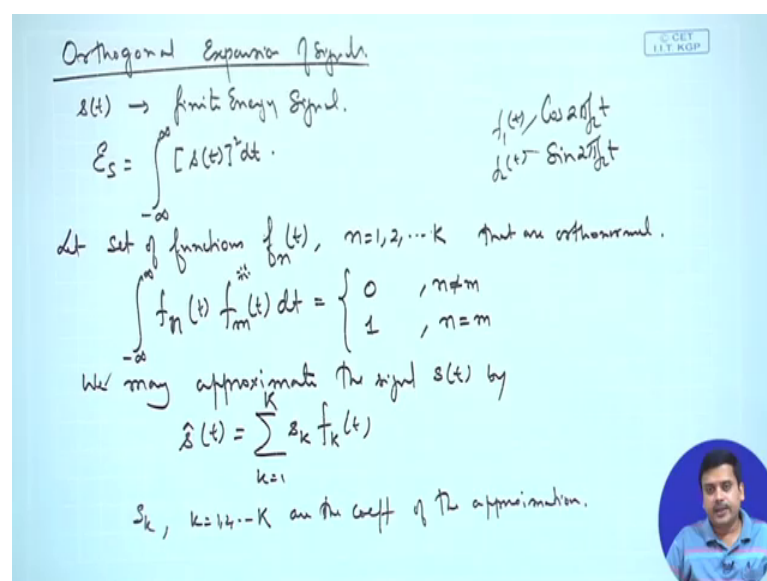 Orthogonal Expansion of Signals.
© CET
I.I.T. KGP
s(t) → finite Energy Signal.
f₁(t), Cos 2πf_c t
f₂(t) – Sin 2πf_c t
ℰ_s = ∫_{-∞}^{∞} [s(t)]² dt.
Let set of functions f_n(t), n=1,2,...K that are orthonormal.
∫_{-∞}^{∞} f_n(t) f_m^*(t) dt = { 0 , n≠m
1 , n=m
We may approximate the signal s(t) by
ŝ(t) = ∑_{k=1}^{K} s_k f_k(t)
s_k, k=1,2,..K are the coeff of the approximation.